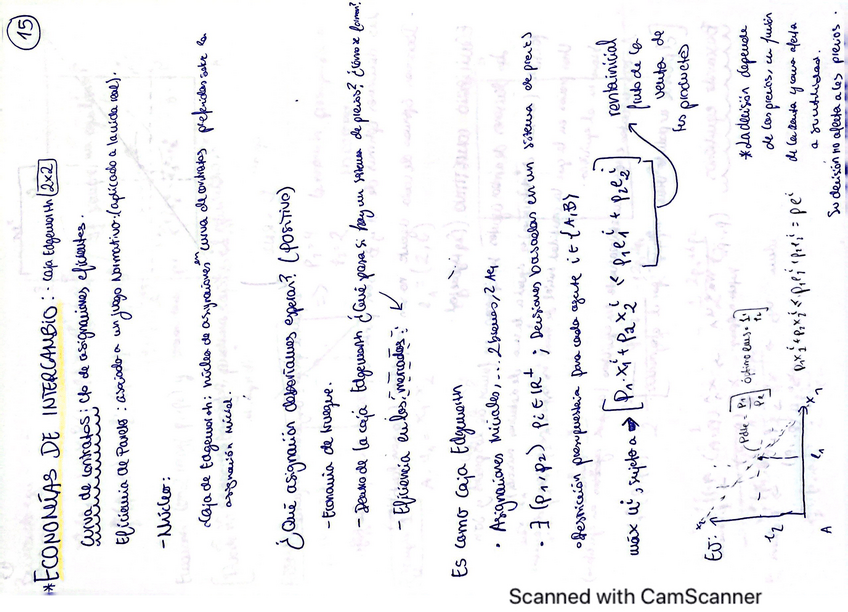 15
*ECONOMÍAS DE INTERCAMBIO: · Caja Edgeworth 2x2
Curva de contratos: Cto de asignaciones eficientes.
Eficiencia de Pareto: asociado a un juego Normativo. (aplicado a la vida real).
- Núcleo:
Caja de Edgeworth: núcleo de asignaciones en curva de contratos preferidas sobre la
asignación inicial.
¿Qué asignación deberíamos esperar? (POSITIVO)
- Economía de trueque.
- Dentro de la caja Edgeworth ¿Qué pasa si hay un sistema de precios? ¿Cómo se forma?
- Eficiencia en los mercados:
Es como Caja Edgeworth
· Asignaciones iniciales, ... 2 bienes, 2 Ag.
· ∃ (p1, p2) pi ∈ IR+ ; Decisiones basadas en un sistema de precios
· Restricción presupuestaria para cada agente i ∈ {A, B}
máx u^i, sujeto a → [p1·x1^i + p2 x2^i ≤ p1e1^i + p2e2^i]
renta inicial
fruto de la
venta de
los productos
EJ:
x2
e2
e1
x1
A
p1x1^i + p2x2^i ≤ p1e1^i + p2e2^i = pe^i
*La decisión depende
de los precios, en función
de la renta y como afecta
a su utilidad.
Su decisión no afecta a los precios.
Scanned with CamScanner